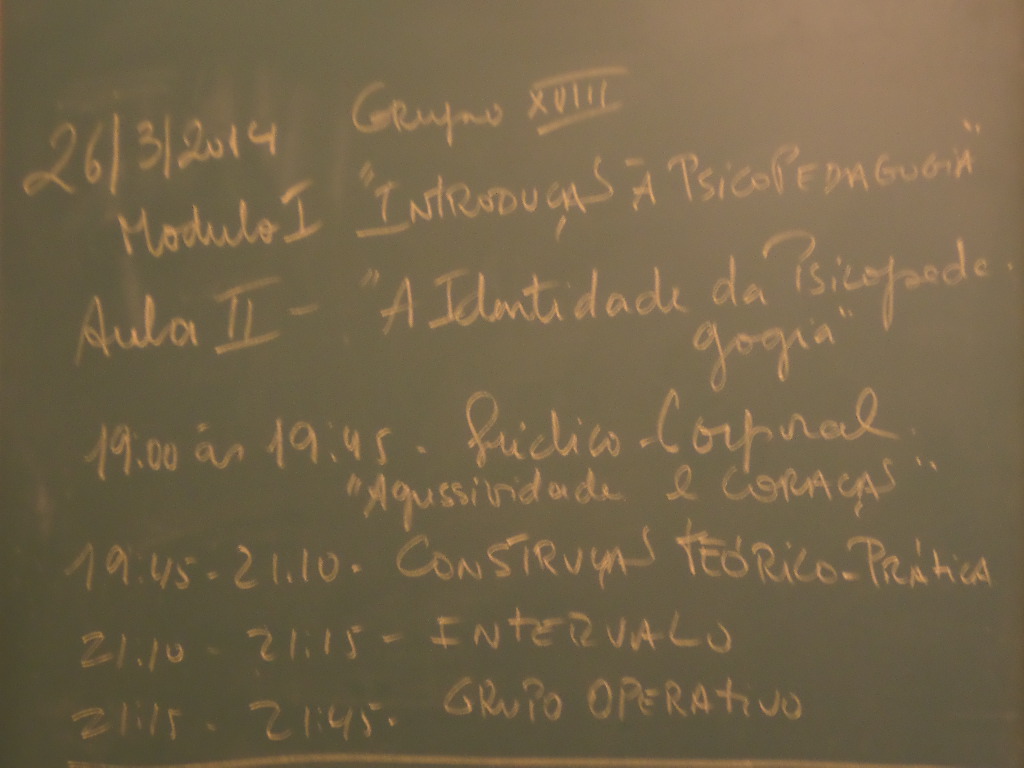 26/3/2014 Grupo XVIII
Modulo I "INTRODUÇÃO À PSICOPEDAGOGIA"
Aula II - "A Identidade da Psicopeda-
gogia"
19:00 às 19:45. Lúdico-Corporal.
"Agressividade e CORAÇÃO"
19:45-21:10. CONSTRUÇÃO TEÓRICO-PRÁTICA
21:10 - 21:15 - INTERVALO
21:15 - 21:45. GRUPO OPERATIVO